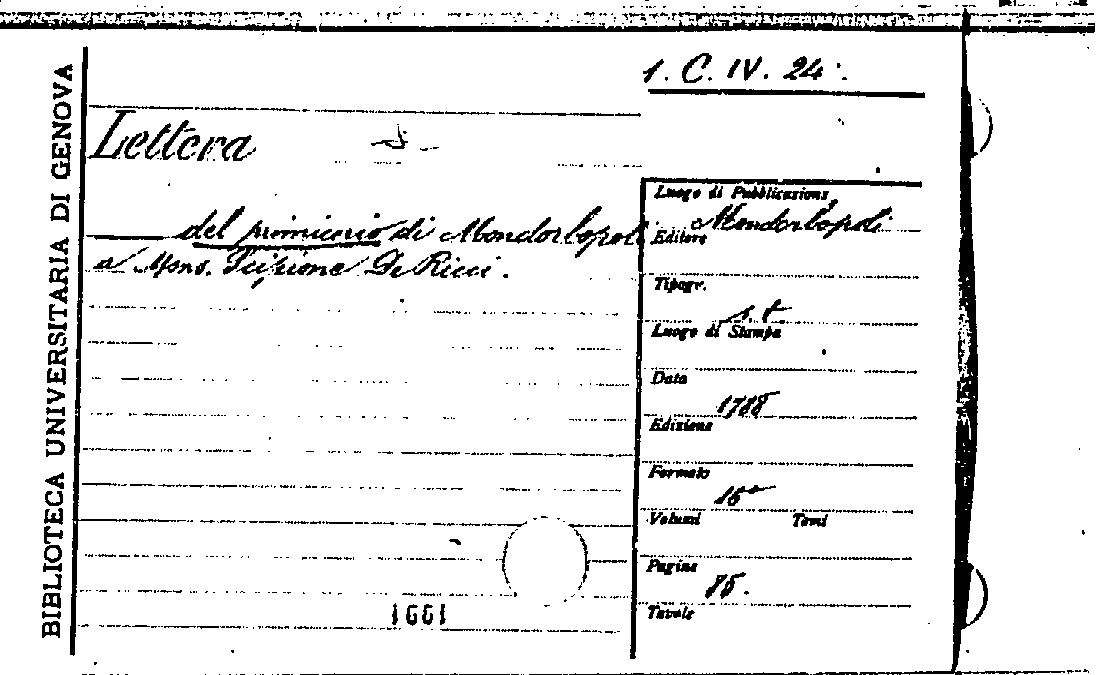 BIBLIOTECA UNIVERSITARIA DI GENOVA
1. C. IV. 24
Lettera
del primicerio di Mondorbopoli
a Mons. Scipione De Ricci.
Luogo di Pubblicazione
Mondorbopoli
Editore
Tipogr.
s. t.
Luogo di Stampa
Data
1788
Edizione
Formato
16°
Volumi Tomi
Pagine
Tavole
1661